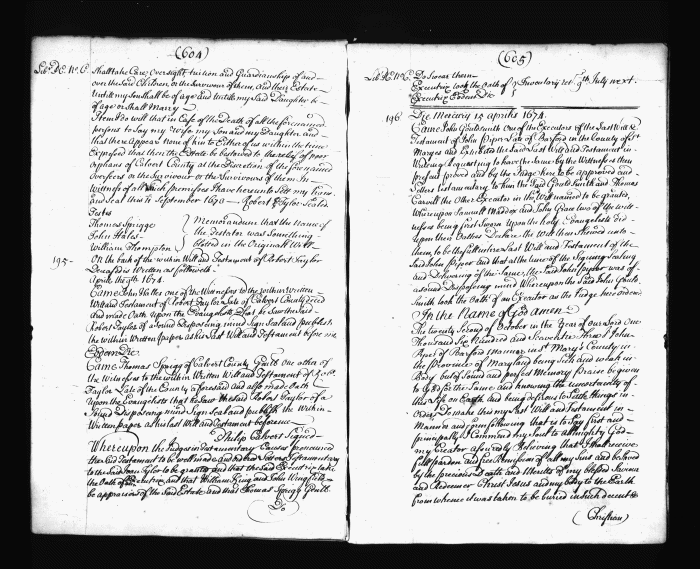 (604)
Lib. D.C. No. 6. Shall take Care, Oversight, tuition and Guardianship of and
over the Said Children, or the Survivour of them, And their Estate
untill my Son Shall be of age and Untill my Said Daughter be
of age or Shall Marry
Item I do will that in Case of the Death of all the forenamed
persons to Say my Wife my Son and my Daughter, and
that there Appear None of kin to Either of us within the time
Expressed that then the Estate be bestowed to the relief of poor
Orphans of Calvert County at the Discretion of the forenamed
Overseers or the Survivour or the Survivours of them In
Witness of all which premisses I have hereunto Set my hand
and Seal this 12 September 1673 Robert Taylor Sealed
Testes
Thomas Sprigge
John Hales
William Thompson
Memorandum that the Name of
the Testator was Something
bloted in the Originall Will
195 - On the back of the within Will and Testament of Robert Taylor
Deceased is Written as followeth
April the 9th 1674.
Came John one of the Witnesses to the within Written
Will and Testament of Robert Taylor Late of Calvert County deced
and made Oath Upon the Evangelists that he Saw the Said
Robert Taylor of a Sound Disposing mind Sign Seal and publish
the within Written paper as his Last Will and Testament before me
Eodem Die
Came Thomas Sprigg of Calvert County Gentl One other of
the Witnesses to the within Written Will and Testament of
Taylor Late of the County aforesaid and also made Oath
Upon the Evangelists that he Saw the Said Robert Taylor of a
Sound Disposing mind Sign Seal and publish the within
Written paper as his last Will and Testament before me
Philip Calvert Signed
Whereupon the Judge in Testamentary Causes pronounced
the Said Testament to be well and Letters Testamentary
to the Said Taylor to be granted and that the Said Executrix take
the Oath of Executrix and that William King and John Wingfield
be appraisers of the Said Estate and that Thomas Sprigg Gentl.
Do
(605)
Lib. D.C. No. 6. Do Swear them
Executrix took the Oath of Inventory ret. 9th July next.
Executrix
196 Die Mercury 15 aprilis 1674.
Came John Gouldsmith One of the Executors of the Last Will &
Testament of John Piper Late of Basford in the County of St
Maryes and Exhibited the Said Last Will and Testament in
Writeing requesting to have the Same by the Witnesses then
present proved and by the Judge here to be approved and
Letters Testamentary to him the Said Gouldsmith and Thomas
Carvill the Other Executor in the Will named to be granted,
Whereupon Samuell Maddox and John Grace two of the wit-
nesses being first Sworn Upon the holy Evangelists Did
upon their Oathes Declare the Will then Shewed unto
them, to be the full intire Last Will and Testament of the
Said John Piper and that at the time of the Signing Sealing
and Delivering of the Same, the Said John Piper was of
a Sound Disposeing mind Whereupon the Said John Gould-
Smith took the Oath of an Executor as the Judge here ordered
In the Name of God Amen
The twenty Second of October in the Year of our Lord One
Thousand Six Hundred and Seaventy three I John
Piper of Basford Mannor, in St Mary's County in
the Province of Maryland being Sick and weak in
Body but of Sound and perfect Memory Praise be given
to God for the Same and knowing the uncertainty of
this Life on Earth and being desirous to Settle things in
Order Do make this my Last Will and Testament in
Manner and form following that is to Say first and
principally I Commend my Soul to allmighty God
my Creator assuredly Believing that I Shall receive
full pardon and free Remission of all my Sins and be Saved
by the precious Death and Merits of my blessed Saviour
and Redeemer Christ Jesus and my body to the Earth
from whence it was taken to be buried in Such decent &
(Christian)